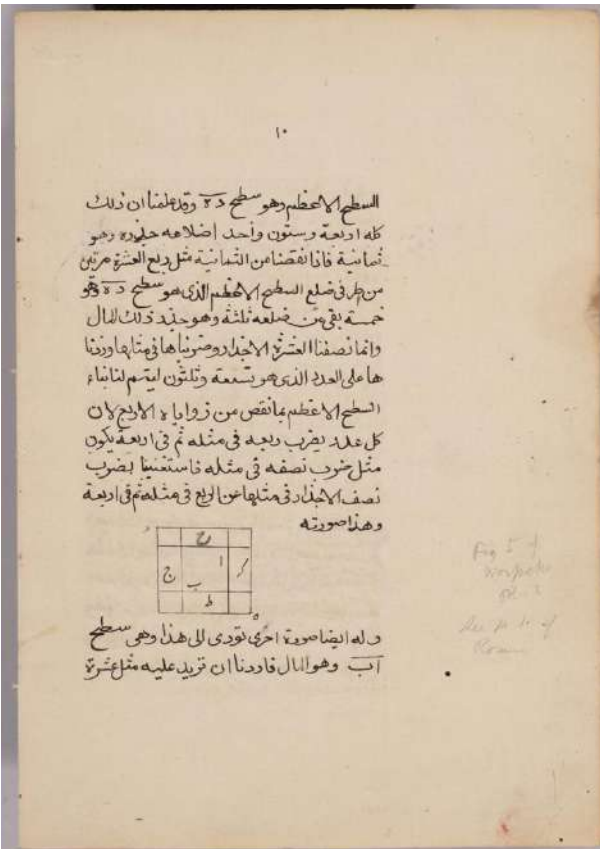 ١٠
السطح الاعظم وهو سطح ده وقد علمنا ان ذلك
كله اربعة وستون واحد اضلاعه جذره وهو
ثمانية فاذا نقصنا من الثمانية مثل ربع العشرة مرتين
من طرفى ضلع السطح الاعظم الذى هو سطح ده وهو
خمسة بقى من ضلعه ثلثة وهو جذر ذلك المال
وانما نصفنا العشرة الاجذار وضربناها فى مثلها وزدنا
ها على العدد الذى هو تسعة وثلثون ليتم لنا بناء
السطح الاعظم بما نقص من زواياه الاربع لان
كل عدد يضرب ربعه فى مثله ثم فى اربعة يكون
مثل ضرب نصفه فى مثله فاستغنينا بضرب
نصف الاجذار فى مثلها عن الربع فى مثله ثم فى اربعة
وهذا صورته
ح
ا
ج
ب
ك
ط
ه
وله ايضا صورة اخرى تودى الى هذا وهى سطح
اب وهو المال فاردنا ان نزيد عليه مثل عشرة
Fig 5 of
See p. 10 of
Rosen